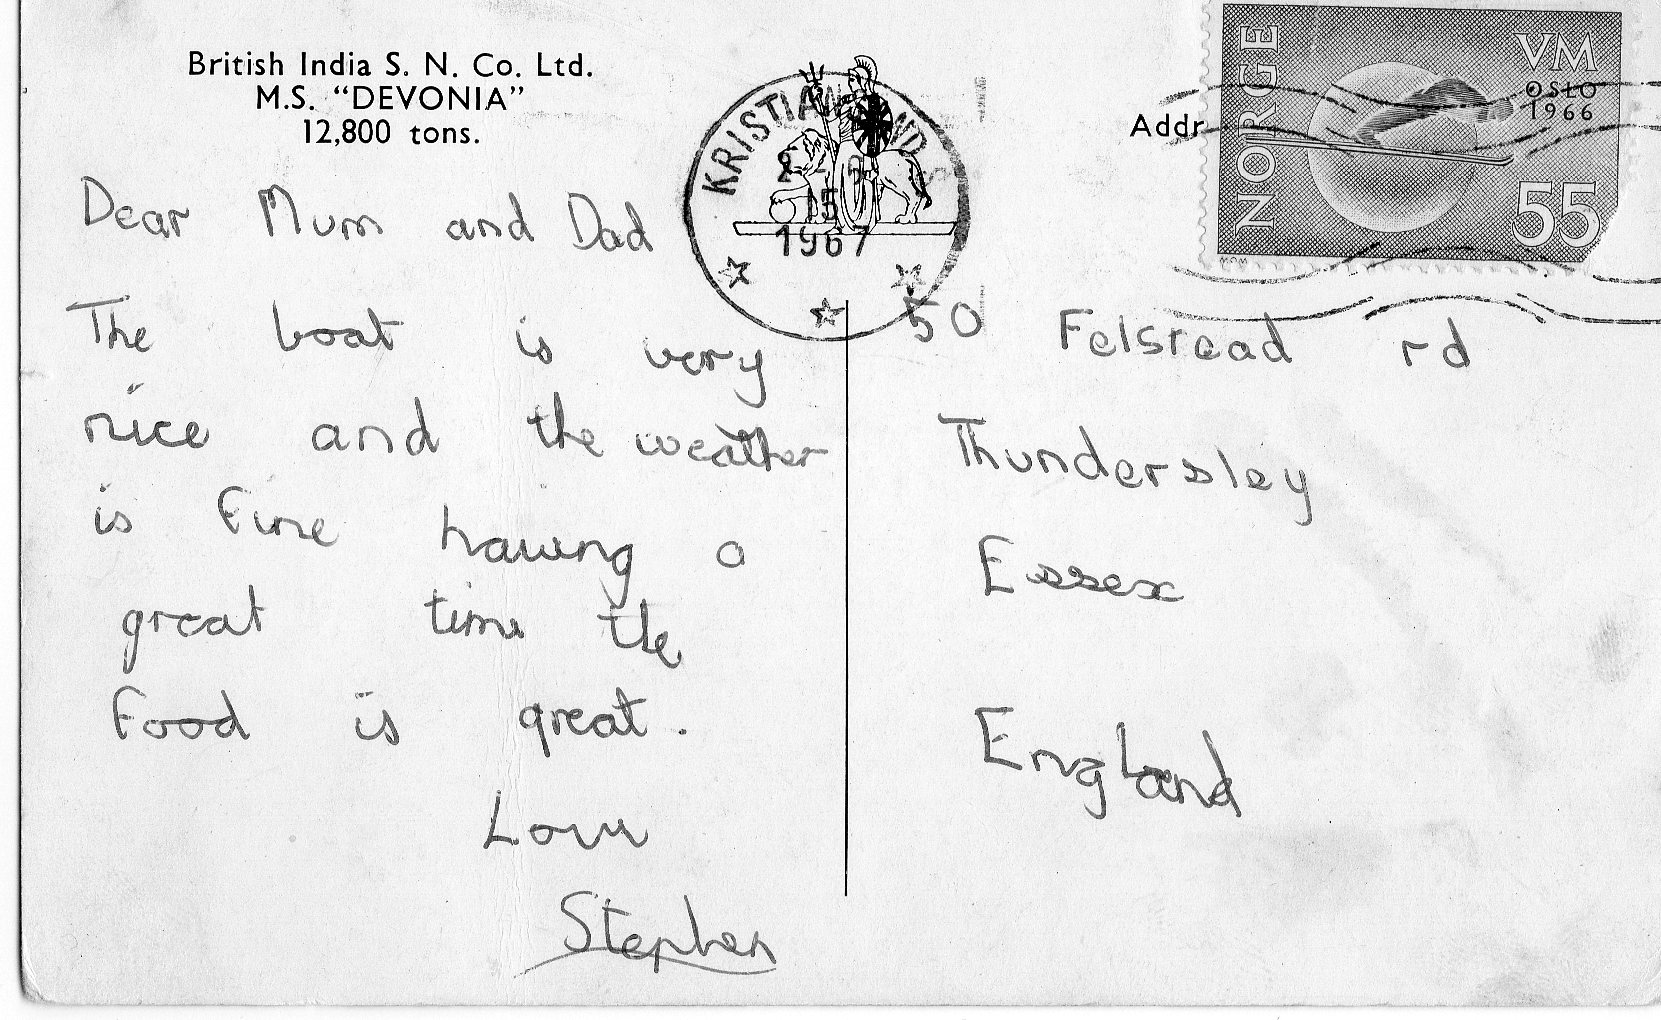 British India S. N. Co. Ltd.
M.S. "DEVONIA"
12,800 tons.
Dear Mum and Dad
The boat is very
nice and the weather
is fine having a
great time the
food is great.
Love
Stephen
KRISTIANSAND S
15
1967
Addr
NORGE
VM
OSLO
1966
55
50 Felstead rd
Thundersley
Essex
England